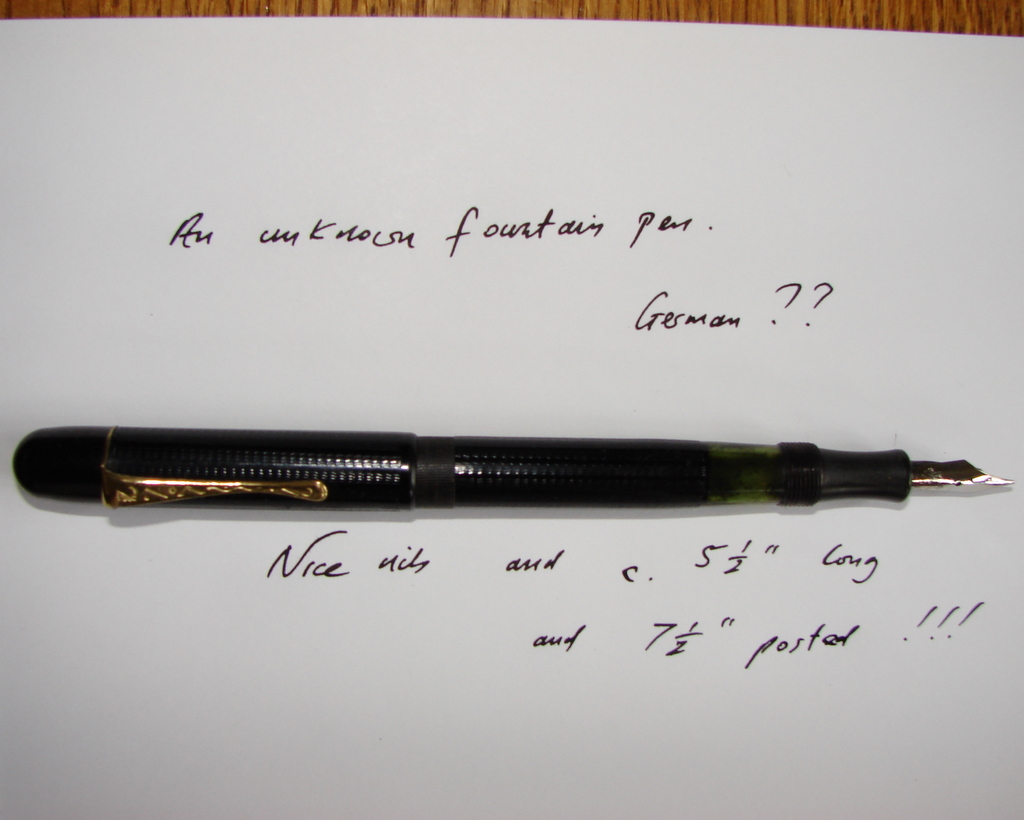 An unknown fountain pen.
German ??
Nice nib and c. 5 1/2" long
and 7 1/2" posted !!!